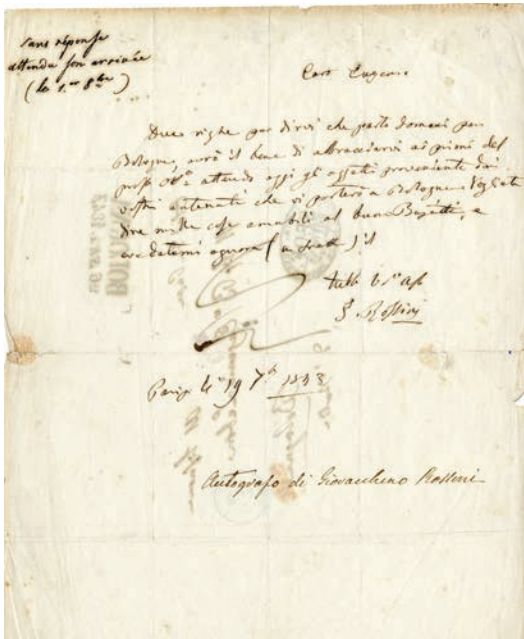 sans réponse
attendu son arrivée
(le 1.er 8bre)
Caro Eugenio
Due righe per dirvi che parto domani per
Bologna, avrò il bene di abbracciarvi ai primi del
pross° attendo oggi gli oggetti proveniente dai
vostri che vi porterò a Bologna. Vogliate
dire mille cose amabili al buon e
credetemi ognora (in ) il
tutto vo aff
G. Rossini
Parigi li 19 7b 1843
Autografo di Giovacchino Rossini